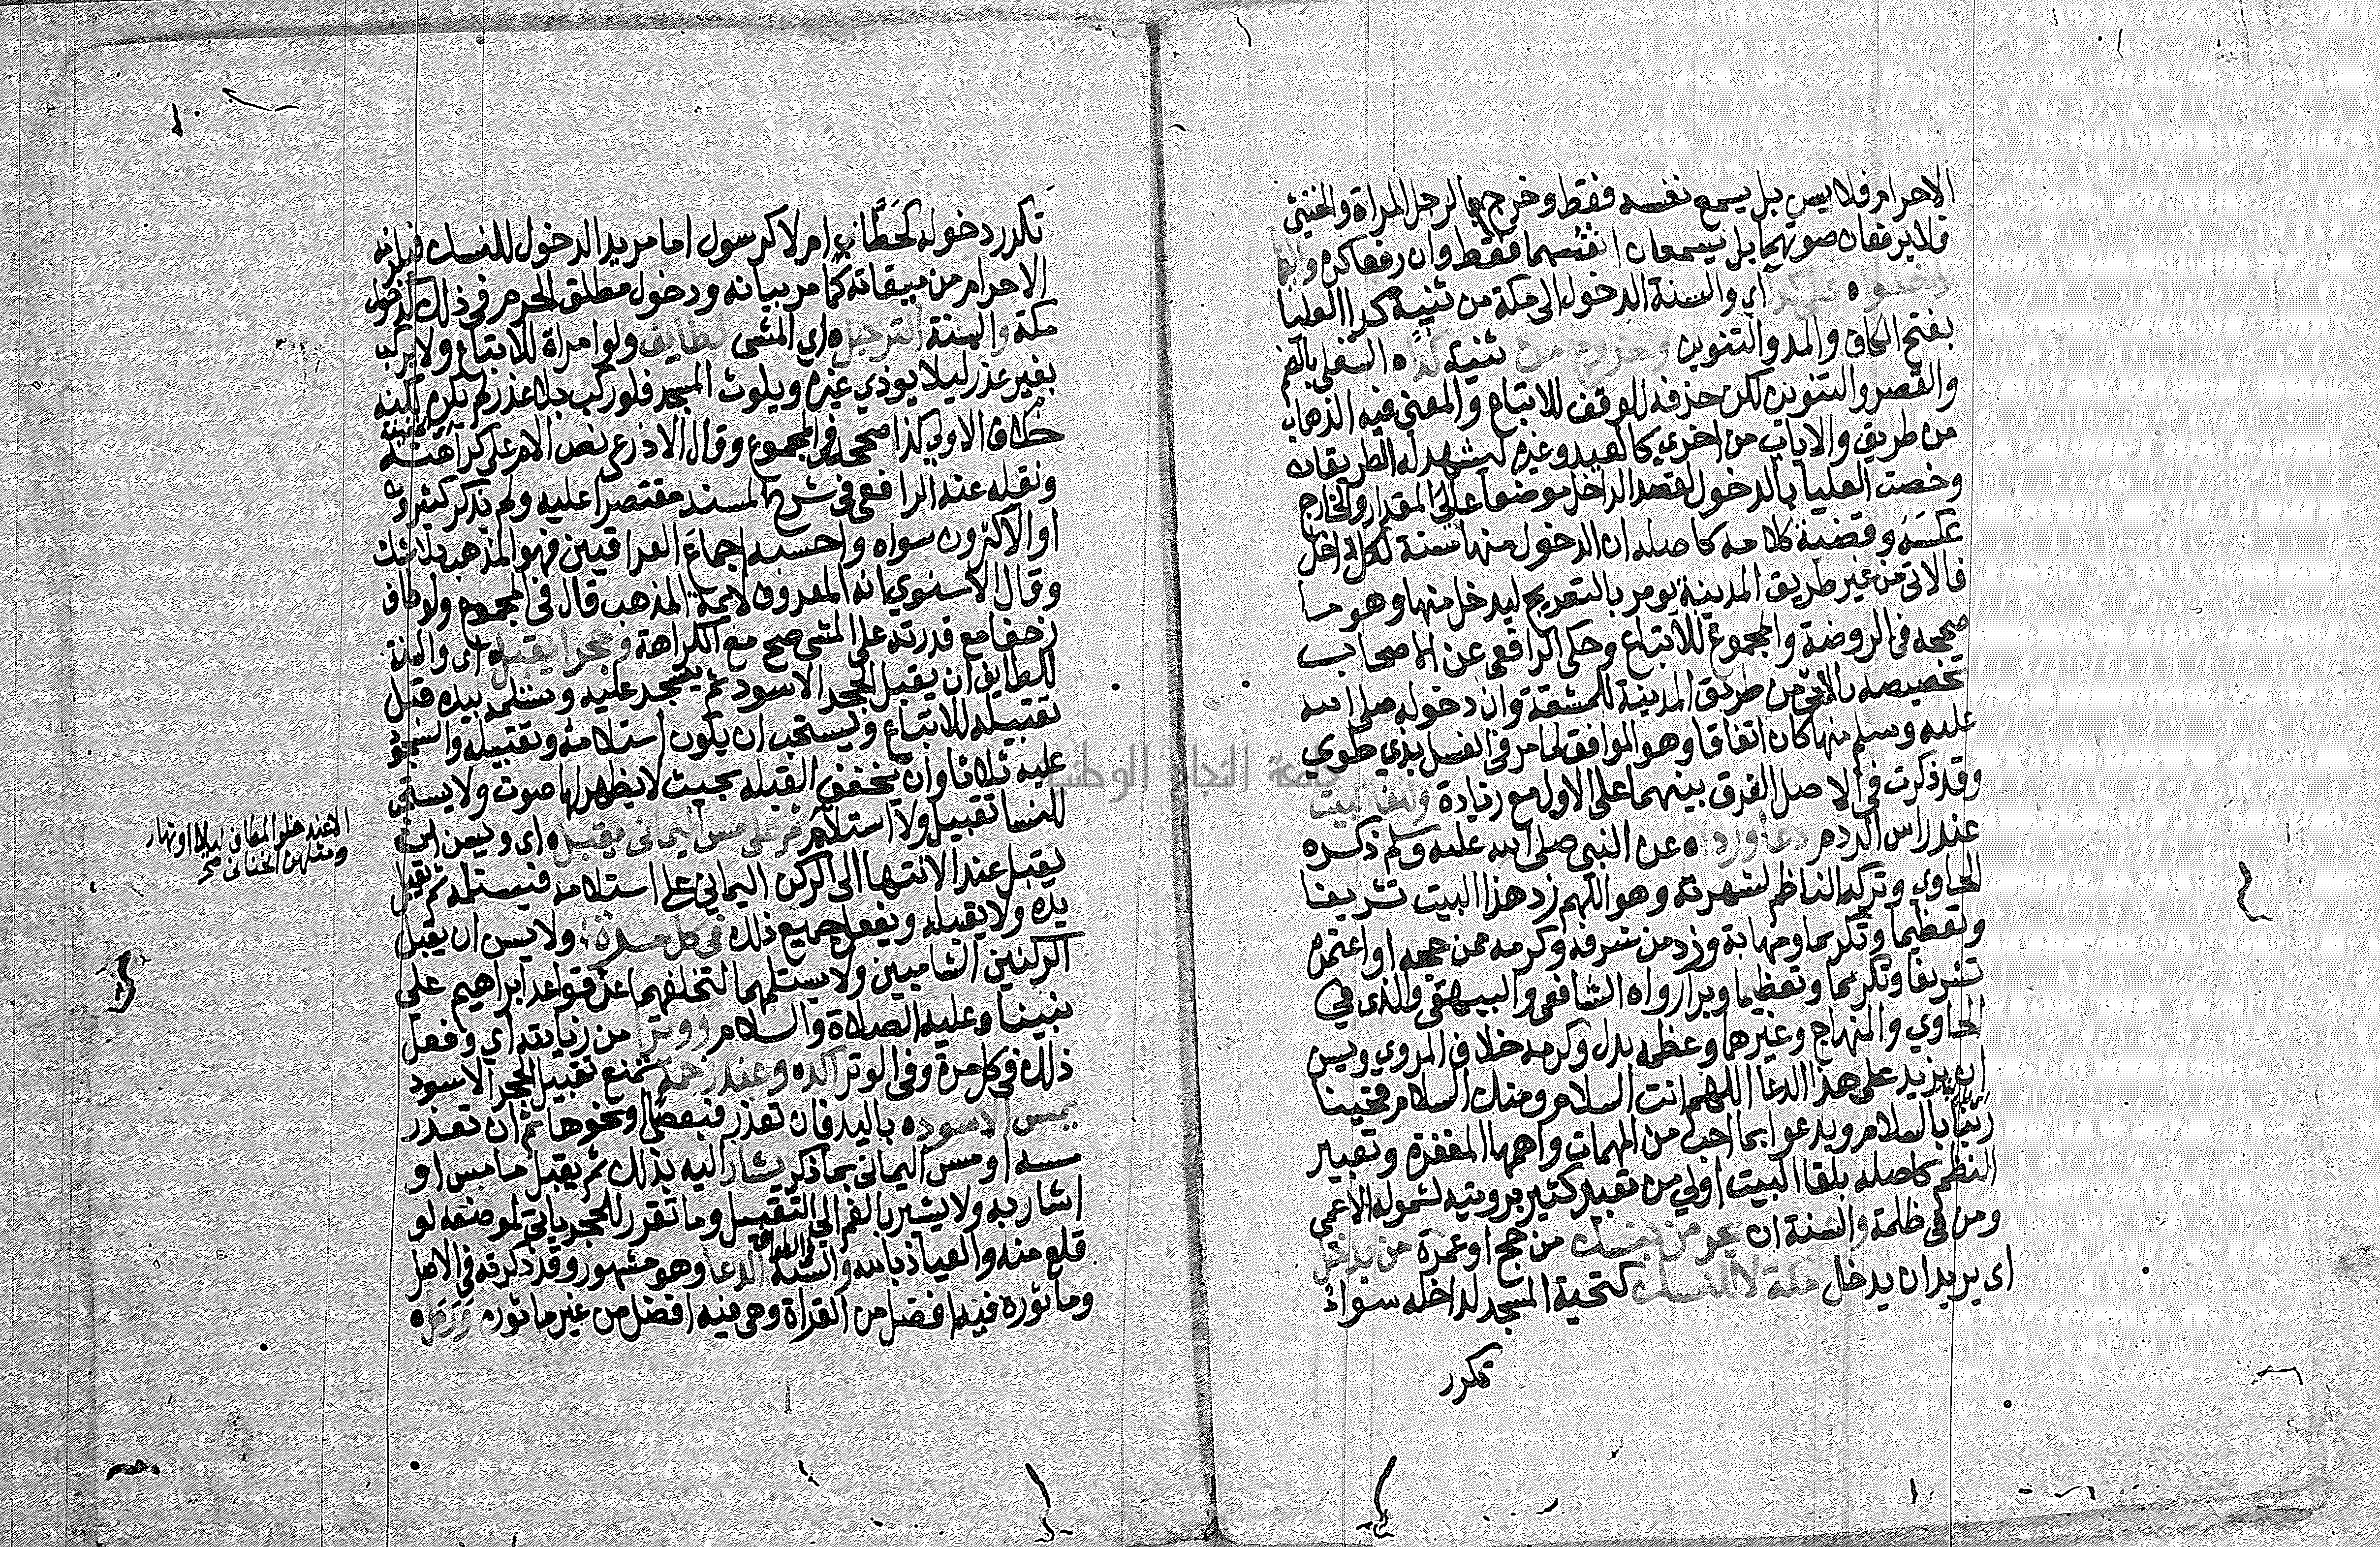 الاحرام فلا يسن بل يسمع نفسه فقط وخرج بالرجل المراة والخنثى
فلا يرفعان صوتهما بل يسمعان انفسهما فقط وان رفعا كره
دخلواه على كدا اي والسنة الدخول الى مكة من ثنية كدا العليا
بفتح الكاف والمد والتنوين وخروج من ثنية كداه السفلى بالضم
والقصر والتنوين لكن حذفه للوقف للاتباع والمعنى فيه الذهاب
من طريق والاياب من اخرى كالعيد وغيره ليشهد له الطريقان
وخصت العليا بالدخول لقصد الداخل موضعا عالي المقدار والخارج
عكسه وقضية كلامه كاصله ان الدخول منها سنة لكل داخل
فالاتي من غير طريق المدينة يومر بالتعريج ليدخل منها وهو ما
صححه في الروضة والمجموع للاتباع وحكى الرافعي عن الاصحاب
تخصيصه بالاتي من طريق المدينة للمشقة وان دخوله صلى الله
عليه وسلم منها كان اتفاقا وهو الموافق لما مر في الغسل بذي طوى
وقد ذكرت في الاصل الفرق بينهما على الاول مع زيادة وللقا البيت
عند راس الردم دعا ورداه عن النبي صلى الله عليه وسلم ذكره
الحاوي وتركه الناظم لشهرته وهو اللهم زد هذا البيت تشريفا
وتعظيما وتكريما ومهابة وزد من شرفه وكرمه ممن حجه او اعتمره
تشريفا وتكريما وتعظيما وبرا رواه الشافعي والبيهقي والذي في
الحاوي والمنهاج وغيرهما وعظمه بدل وكرمه خلاف المروي ويسن
ان يزيد على هذا الدعا اللهم انت السلام ومنك السلام فحينا
ربنا بالسلام ويدعوا بما احب من المهمات واهمها المغفرة وتعبير
النظم كاصله بلقا البيت اولى من تعبير كثير برويته لشموله الاعمى
ومن في ظلمة والسنة ان يحرمن بنسك من حج او عمرة من يدخل
اى يريد ان يدخل مكة لا للنسك كتحية المسجد لداخله سواء
تكرر
تكرر دخوله كحطاب ام لا كرسول اما مريد الدخول للنسك فيلزمه
الاحرام من ميقاته كما مر بيانه ودخول مطلق الحرم في ذلك كدخول
مكة والسنة الترجل ه اي المشي لطايف ولو امراة للاتباع ولا يركب
بغير عذر ليلا يوذي غيره ويلوث المسجد فلو ركب بلا عذر لم يكره لكنه
خلاف الاولى كذا صححه في المجموع وقال الاذرعي نص الام على كراهته
ونقله عنه الرافعي في شرح المسند مقتصرا عليه ولم تذكر كثيرون
او الاكثرون سواه واحسبه اجماع العراقيين فهو المذهب بلا شك
وقال الاسنوي انه المعروف لايمة المذهب قال في المجموع ولو طاف
زحفا مع قدرته على المشي صح مع الكراهة وحجرا يقبله اى والسنة
للطايف ان يقبل الحجر الاسود ثم يسجد عليه ويستلمه بيده قبل
تقبيله للاتباع ويستحب ان يكون استلامه وتقبيله والسجود
عليه ثلاثا وان يخفف القبلة بحيث لا يظهر لها صوت ولا يستحب
للنسا تقبيل ولا استلام ثم على مس اليماني يقبل ه اى ويسن ان
يقبل عند الانتها الى الركن اليماني على استلامه فيستلمه ثم يقبل
يده ولا يقبله ويفعل جميع ذلك في كل مرة ولا يسن ان يقبل
الركنين الشاميين ولا يستلمهما لتخلفهما عن قواعد ابراهيم على
نبينا وعليه الصلاة والسلام ووترا من زيادته اي وفعل
ذلك في كل مرة وفي الوتر آكده وعند زحمة تمنع تقبيل الحجر الاسود
يمس الاسوده باليد فان تعذر فبعصى او نحوها ثم ان تعذر
مسه او مس اليماني بما ذكر يشار اليه بذلك ثم يقبل ما مس او
اشار به ولا يشير بالفم الى التقبيل وما تقرر للحجر ياتي لموضعه لو
قلع منه والعياذ بالله والسنة في الطواف الدعا وهو مشهور وقد ذكرته في الاصل
وماثوره فيه افضل من القراة وهي فيه افضل من غير ماثوره ورمله
الا عند خلو المطاف ليلا او نهار
ومثلهن الخناثى
جامعة النجاح الوطنية